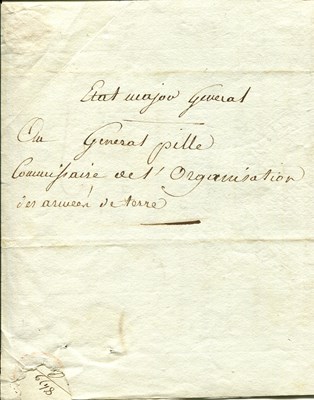 Etat major General
Au General pille
Commissaire de l'Organisation
des armées de terre